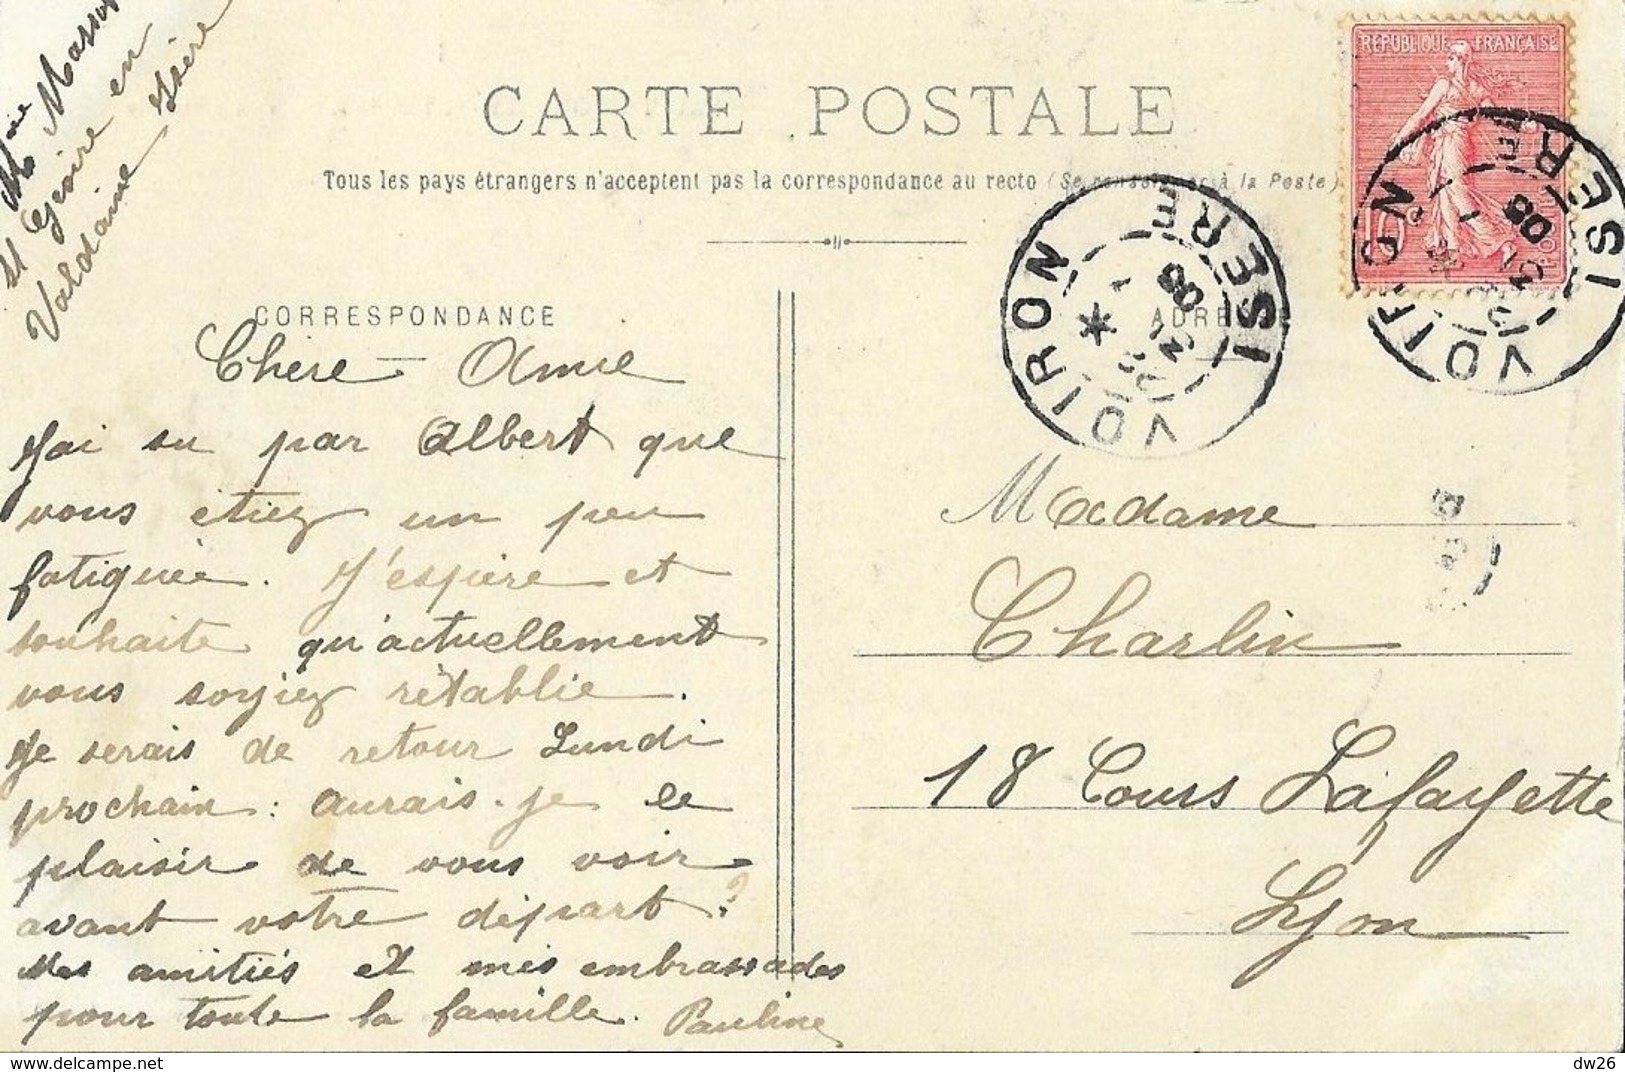 Mme
St Geoire en
Valdaine Isère
CARTE POSTALE
Tous les pays étrangers n'acceptent pas la correspondance au recto (Se renseigner à la Poste)
REPUBLIQUE FRANÇAISE
10c
VOIRON ISERE
31
08
VOIRON ISERE
31
08
CORRESPONDANCE
ADRESSE
Chère Amie
J'ai su par Albert que
vous étiez un peu
fatiguée. J'espère et
souhaite qu'actuellement
vous soyiez rétablie.
Je serais de retour Lundi
prochain : aurais-je le
plaisir de vous voir
avant votre départ ?
Mes amitiés et mes embrassades
pour toute la famille. Pauline
Madame
Charlin
18 Cours Lafayette
Lyon
dw26